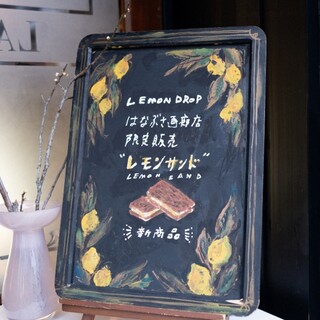 LEMON DROP
はなぶさ画廊店
限定販売
"レモンサンド"
LEMON SAND
新商品